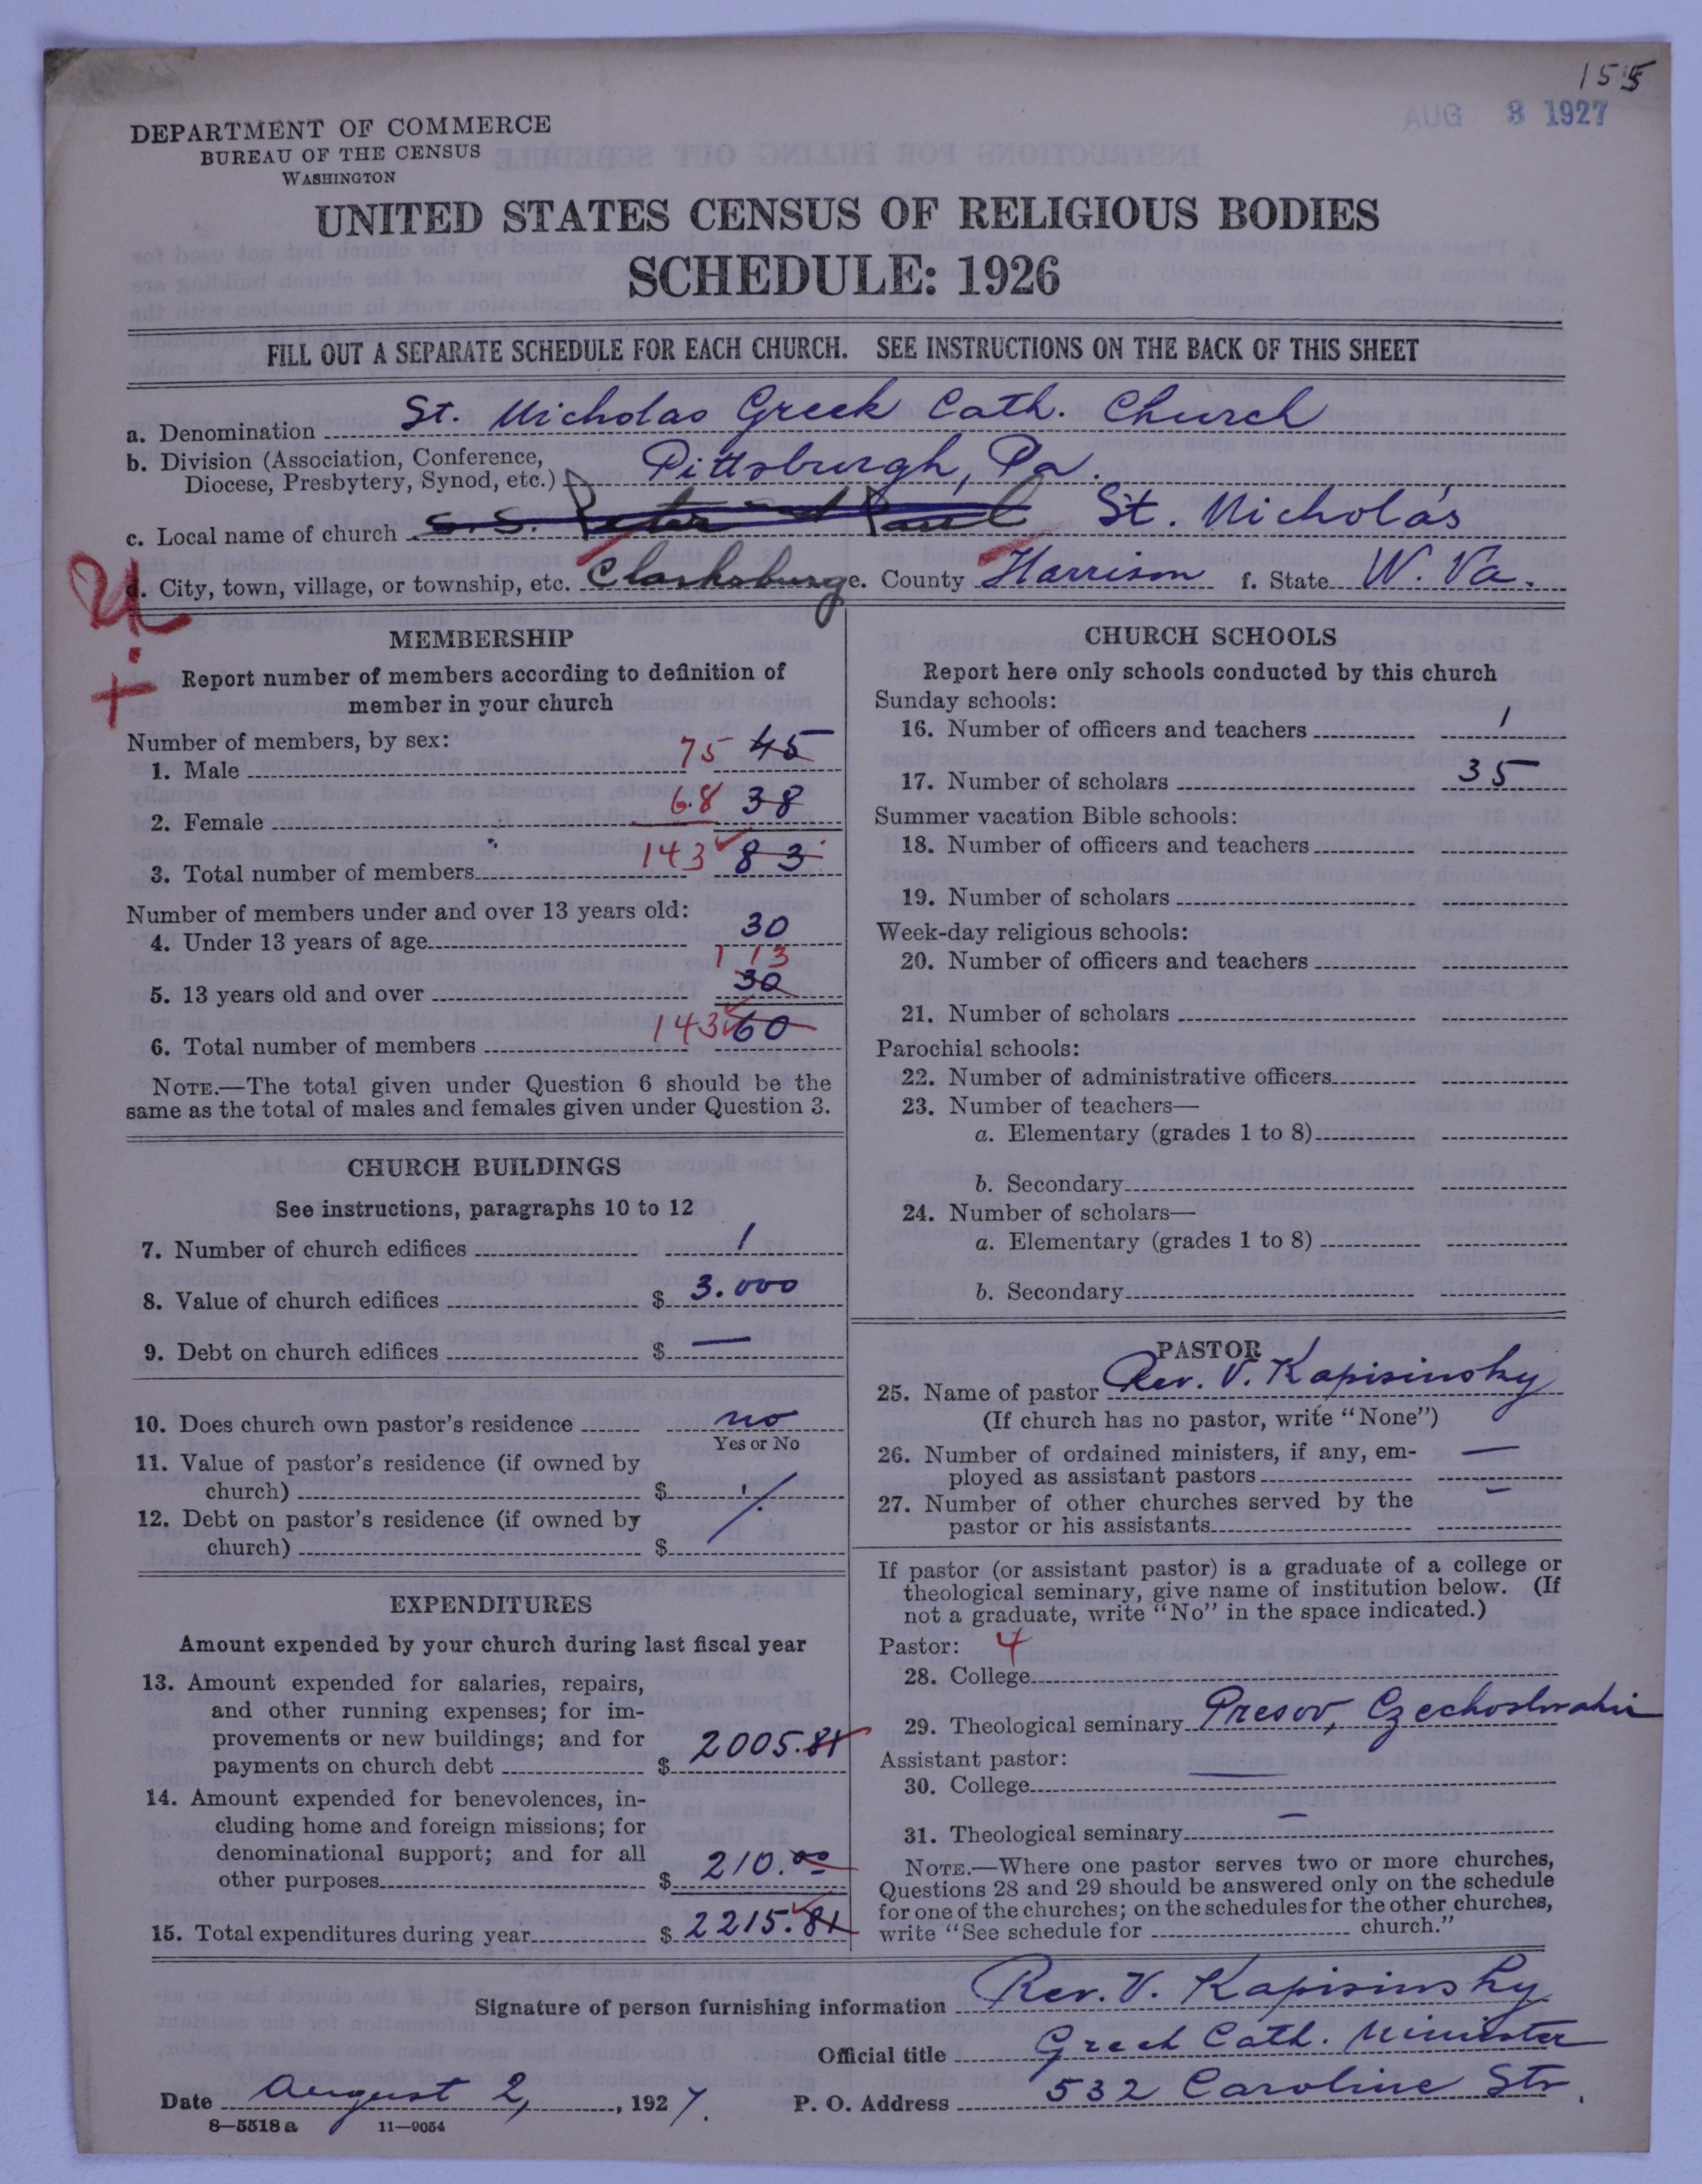 155
AUG 3 1927
DEPARTMENT OF COMMERCE
BUREAU OF THE CENSUS
WASHINGTON
UNITED STATES CENSUS OF RELIGIOUS BODIES
SCHEDULE: 1926
FILL OUT A SEPARATE SCHEDULE FOR EACH CHURCH. SEE INSTRUCTIONS ON THE BACK OF THIS SHEET
a. Denomination St. Nicholas Greek Cath. Church
b. Division (Association, Conference,
Diocese, Presbytery, Synod, etc.) Pittsburgh, Pa.
c. Local name of church S.S. Peter and Paul St. Nicholas
d. City, town, village, or township, etc. Clarksburg e. County Harrison f. State W. Va.
MEMBERSHIP
Report number of members according to definition of
member in your church
Number of members, by sex:
1. Male 75 45
2. Female 68 38
3. Total number of members 143 83
Number of members under and over 13 years old:
4. Under 13 years of age 30
113
5. 13 years old and over 30
6. Total number of members 143 60
NOTE.—The total given under Question 6 should be the
same as the total of males and females given under Question 3.
CHURCH BUILDINGS
See instructions, paragraphs 10 to 12
7. Number of church edifices 1
8. Value of church edifices $ 3.000
9. Debt on church edifices $ —
10. Does church own pastor's residence no
Yes or No
11. Value of pastor's residence (if owned by
church) $
12. Debt on pastor's residence (if owned by
church) $
EXPENDITURES
Amount expended by your church during last fiscal year
13. Amount expended for salaries, repairs,
and other running expenses; for im-
provements or new buildings; and for
payments on church debt $ 2005.81
14. Amount expended for benevolences, in-
cluding home and foreign missions; for
denominational support; and for all
other purposes $ 210.00
15. Total expenditures during year $ 2215.81
CHURCH SCHOOLS
Report here only schools conducted by this church
Sunday schools:
16. Number of officers and teachers 1
17. Number of scholars 35
Summer vacation Bible schools:
18. Number of officers and teachers
19. Number of scholars
Week-day religious schools:
20. Number of officers and teachers
21. Number of scholars
Parochial schools:
22. Number of administrative officers
23. Number of teachers—
a. Elementary (grades 1 to 8)
b. Secondary
24. Number of scholars—
a. Elementary (grades 1 to 8)
b. Secondary
PASTOR
25. Name of pastor Rev. V. Kapisinsky
(If church has no pastor, write "None")
26. Number of ordained ministers, if any, em-
ployed as assistant pastors —
27. Number of other churches served by the
pastor or his assistants —
If pastor (or assistant pastor) is a graduate of a college or
theological seminary, give name of institution below. (If
not a graduate, write "No" in the space indicated.)
Pastor: 4
28. College
29. Theological seminary Presov, Czechoslovakia
Assistant pastor:
30. College —
31. Theological seminary —
NOTE.—Where one pastor serves two or more churches,
Questions 28 and 29 should be answered only on the schedule
for one of the churches; on the schedules for the other churches,
write "See schedule for church."
Signature of person furnishing information Rev. V. Kapisinsky
Official title Greek Cath. Minister
Date August 2, 1927. P. O. Address 532 Caroline Str.
8—5518 a 11—9054